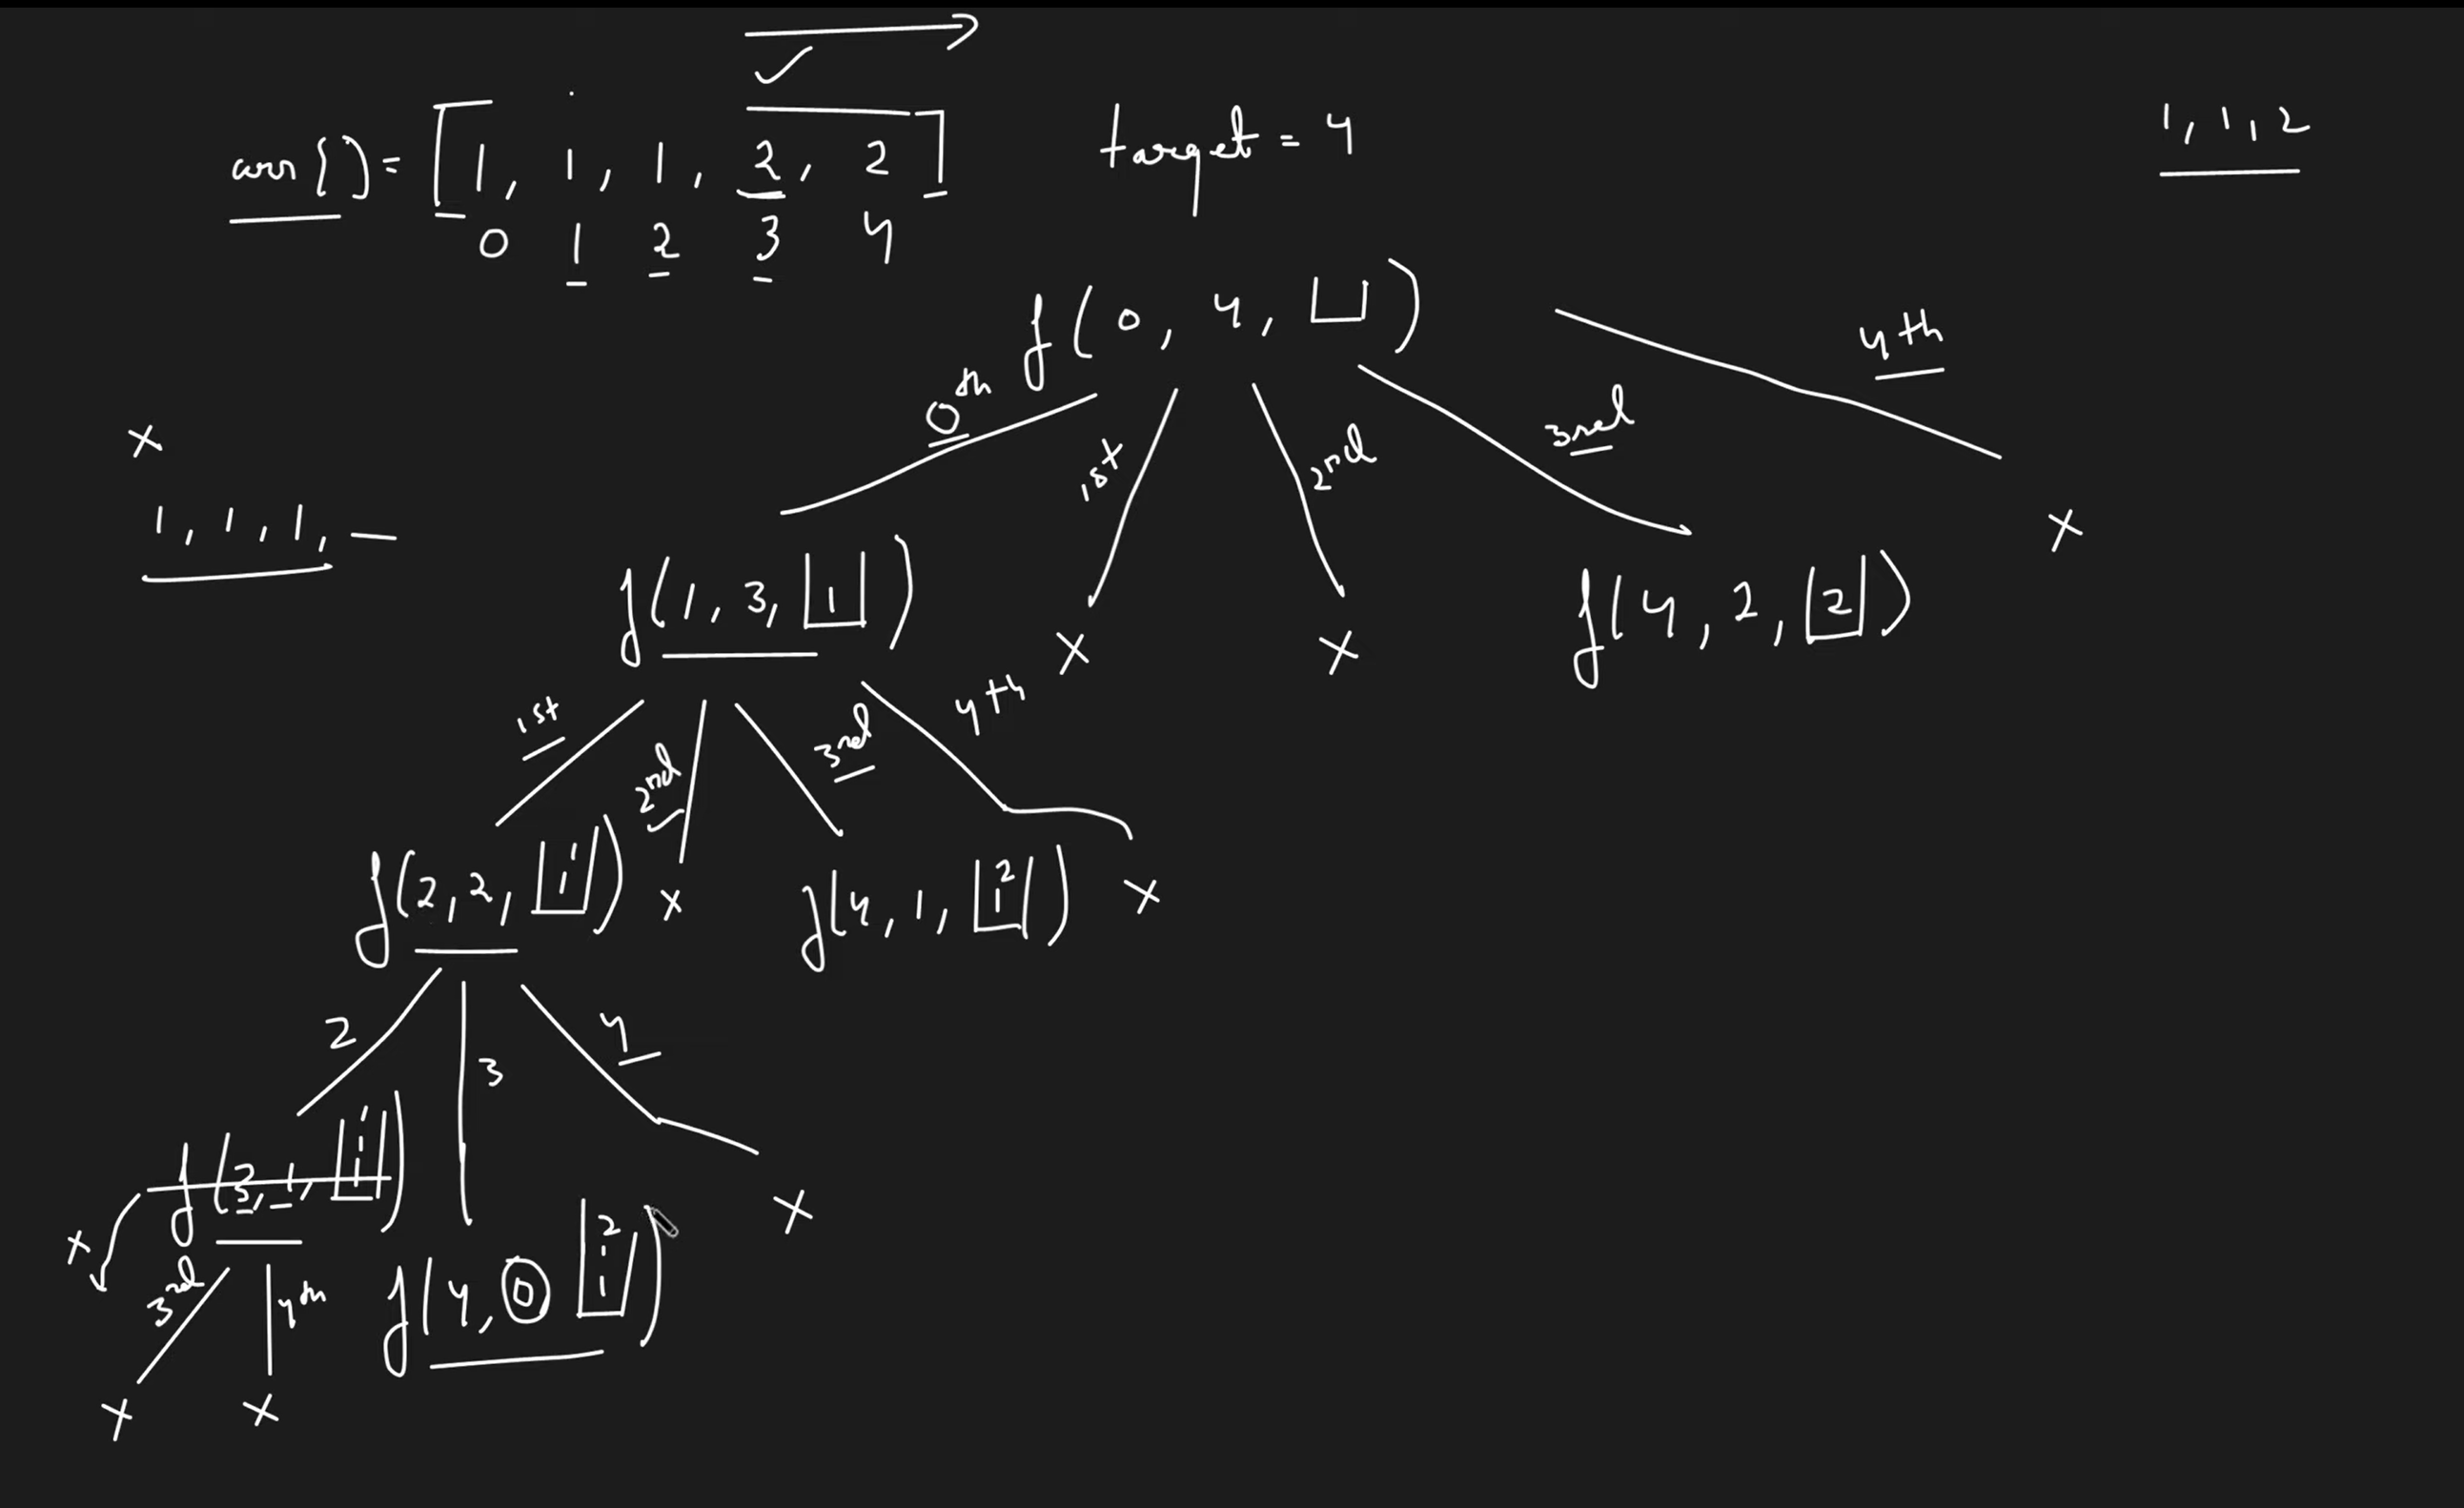 arr[] = [1, 1, 1, 2, 2] target = 4
1, 1, 2
0 1 2 3 4
f(0, 4, [])
0th 1st 2nd 3rd 4th
x
1, 1, 1, _
f(1, 3, [1]) x x f(4, 2, [2]) x
1st 2nd 3rd 4th
f(2, 2, [1 1]) x f(4, 1, [1 2]) x
2 3 4
f(3, 1, [1 1 1]) x
x
3rd 4th f(4, 0 [1 1 2])
x x